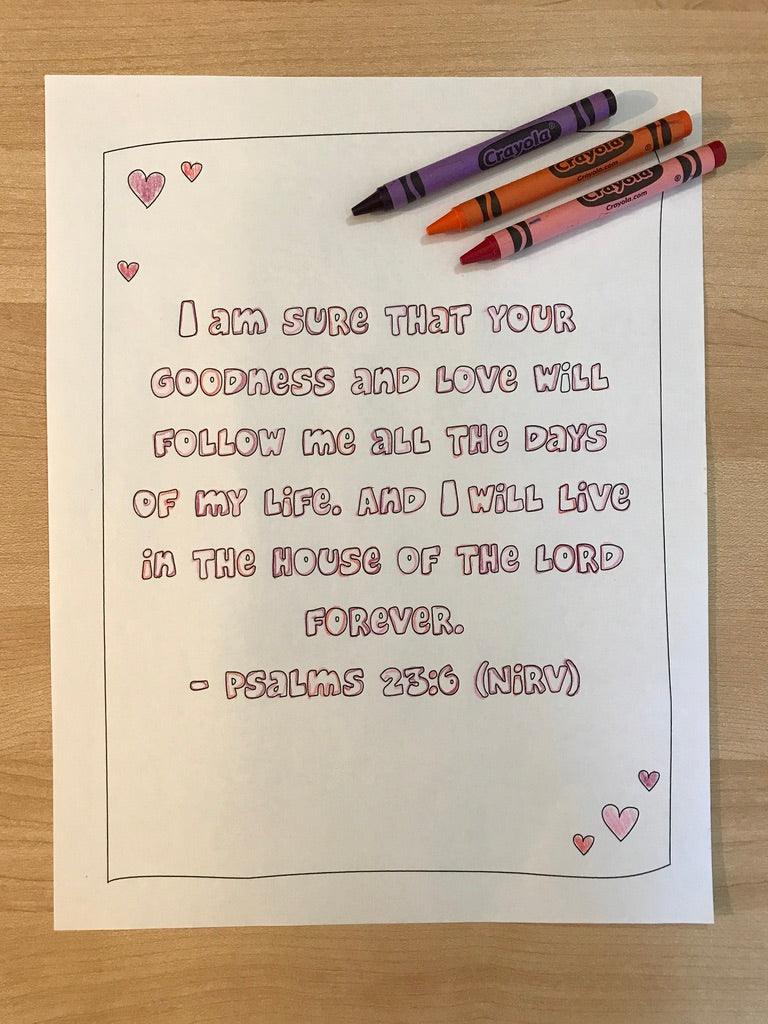 Crayola
Crayola
Crayola.com
Crayola
Crayola.com
I am sure that your
goodness and love will
follow me all the days
of my life. And I will live
in the house of the Lord
forever.
- Psalms 23:6 (NiRV)